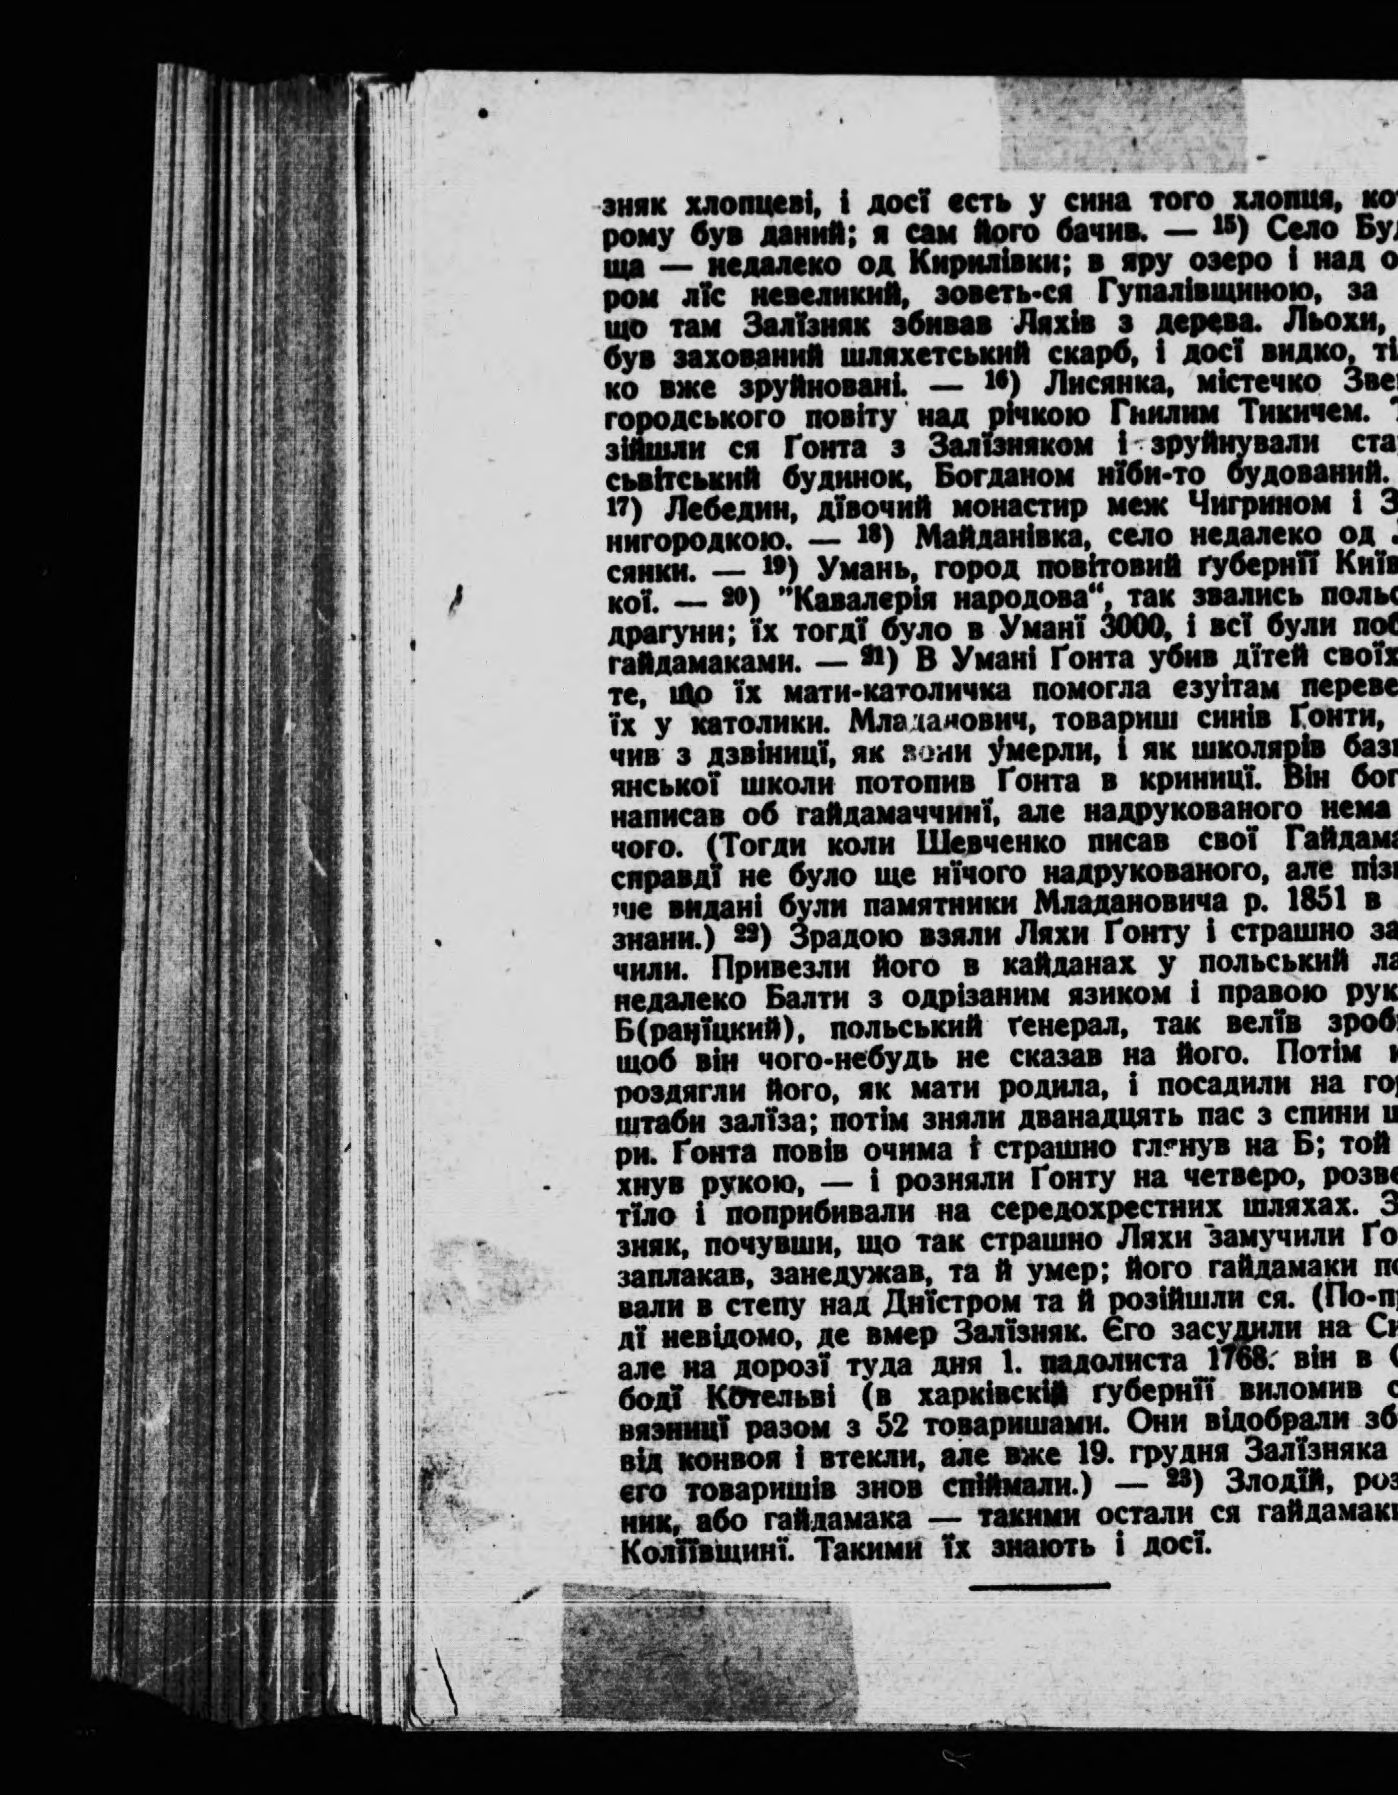 зняк хлопцеві, і досї єсть у сина того хлопця, ко
рому був даний; я сам його бачив. — 15) Село Бу
ща — недалеко од Кирилівки; в яру озеро і над о
ром лїс невеликий, зоветь-ся Гупалівщиною, за
що там Залїзняк збивав Ляхів з дерева. Льохи,
був захований шляхетський скарб, і досї видко, ті
ко вже зруйновані. — 16) Лисянка, містечко Зве
городського повіту над річкою Гнилим Тикичем.
зійшли ся Ґонта з Залїзняком і зруйнували ста
сьвітський будинок, Богданом нїби-то будований.
17) Лебедин, дївочий монастир меж Чигрином і З
нигородкою. — 18) Майданівка, село недалеко од
сянки. — 19) Умань, город повітовий ґубернїї Київ
кої. — 20) "Кавалєрія народова“, так звались польс
драгуни; їх тогдї було в Уманї 3000, і всї були поб
гайдамаками. — 21) В Умані Ґонта убив дїтей своїх
те, що їх мати-католичка помогла єзуітам переве
їх у католики. Младанович, товариш синів Ґонти,
чив з дзвіницї, як вони умерли, і як школярів баз
янської школи потопив Ґонта в криницї. Він бог
написав об гайдамаччинї, але надрукованого нема
чого. (Тогди коли Шевченко писав свої Гайдама
справдї не було ще нїчого надрукованого, але пізн
ше видані були памятники Младановича р. 1851 в
знани.) 22) Зрадою взяли Ляхи Ґонту і страшно за
чили. Привезли його в кайданах у польський ла
недалеко Балти з одрізаним язиком і правою рук
Б(ранїцкий), польський ґенерал, так велїв зроб
щоб він чого-небудь не сказав на його. Потім
роздягли його, як мати родила, і посадили на го
штаби залїза; потім зняли дванадцять пас з спини ш
ри. Ґонта повів очима і страшно глянув на Б; той
хнув рукою, — і розняли Ґонту на четверо, розве
тїло і поприбивали на середохрестних шляхах. З
зняк, почувши, що так страшно Ляхи замучили Ґо
заплакав, занедужав, та й умер; його гайдамаки по
вали в степу над Днїстром та й розійшли ся. (По-п
дї невідомо, де вмер Залїзняк. Єго засудили на Си
але на дорозї туда дня 1. падолиста 1768. він в С
бодї Котельві (в харківскій ґубернїї виломив с
вязницї разом з 52 товаришами. Они відобрали зб
від конвоя і втекли, але вже 19. грудня Залїзняка
єго товаришів знов спіймали.) — 23) Злодїй, роз
ник, або гайдамака — такими остали ся гайдамаки
Колїївщинї. Такими їх знають і досї.